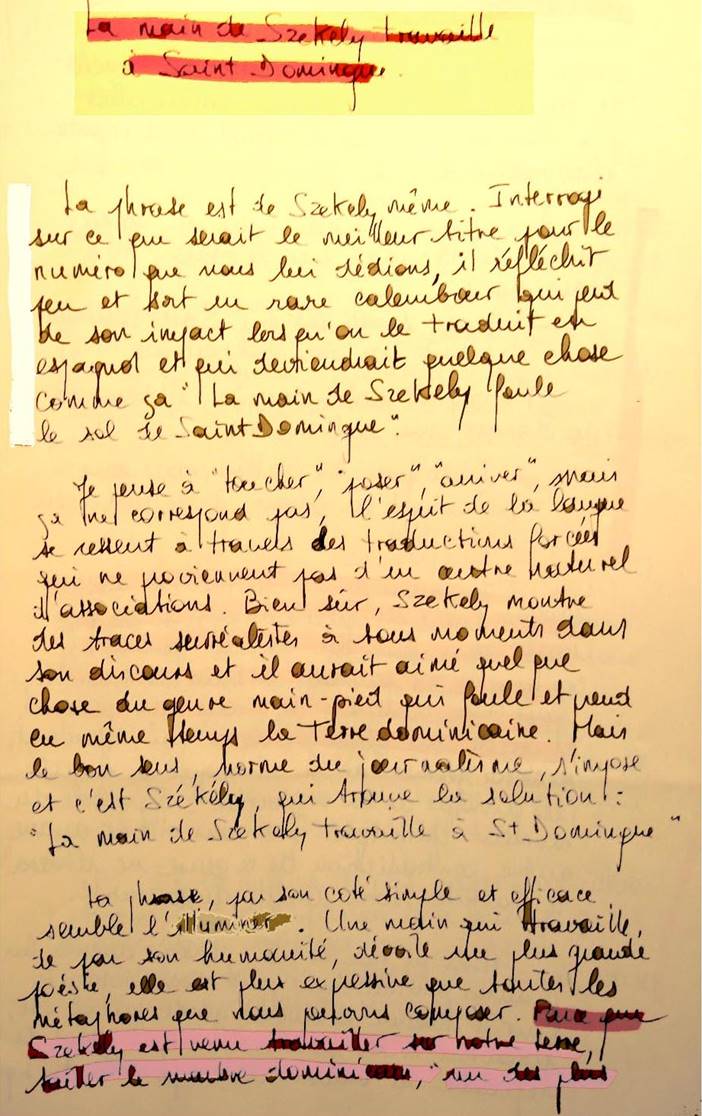 La main de Szekely travaille
à Saint Domingue.
La phrase est de Szekely même. Interrogé
sur ce que serait le meilleur titre pour le
numéro que nous lui dédions, il réfléchit
peu et sort un rare calembour qui perd
de son impact lorsqu'on le traduit en
espagnol et qui deviendrait quelque chose
comme ça " La main de Szekely foule
le sol de Saint Domingue".
Je pense à "toucher", "poser", "arriver", mais
ça ne correspond pas, l'esprit de la langue
se ressent à travers des traductions forcées
qui ne proviennent pas d'un ordre naturel
d'associations. Bien sûr, Szekely montre
des traces surréalistes à tous moments dans
son discours et il aurait aimé quelque
chose du genre main-pied qui foule et prend
en même temps la Terre dominicaine. Mais
le bon sens, norme du journalisme, s'impose
et c'est Székély, qui trouve la solution :
"La main de Szekely travaille à St Domingue"
La phrase, par son coté simple et efficace
semble l'illuminer. Une main qui travaille,
de par son humanité, dévoile une plus grande
poésie, elle est plus expressive que toutes les
métaphores que nous pouvons composer. Parce que
Szekely est venu travailler sur notre terre,
tailler le marbre dominicain, "un des plus